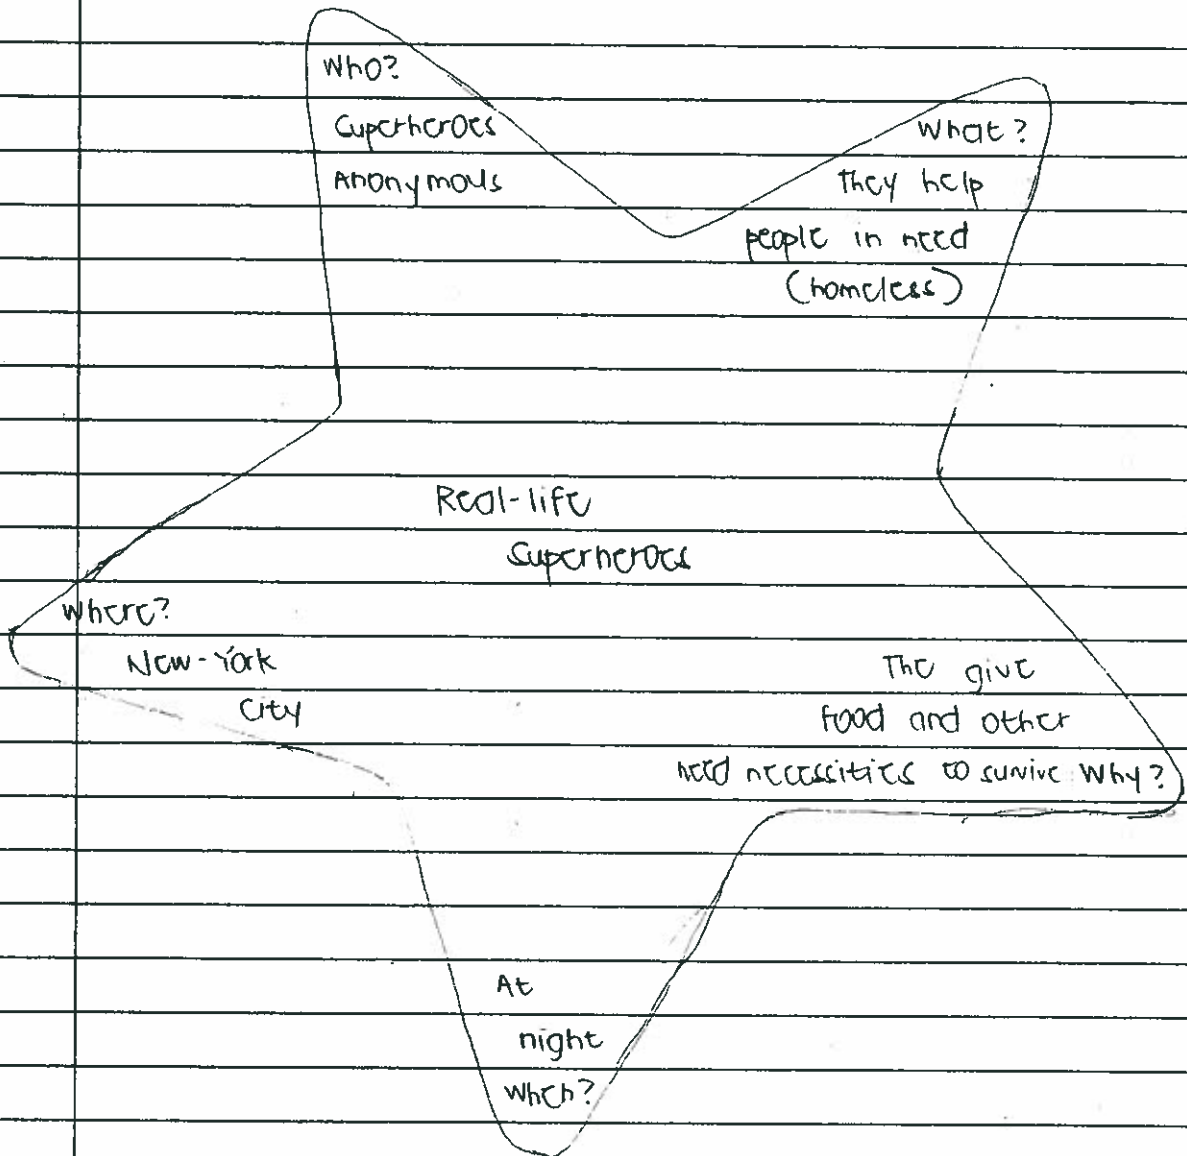 Who?
Superheroes
Anonymous
What?
They help
people in need
(homeless)
Real-life
superheroes
Where?
New-York
City
The give
food and other
need necessities to survive Why?
At
night
When?